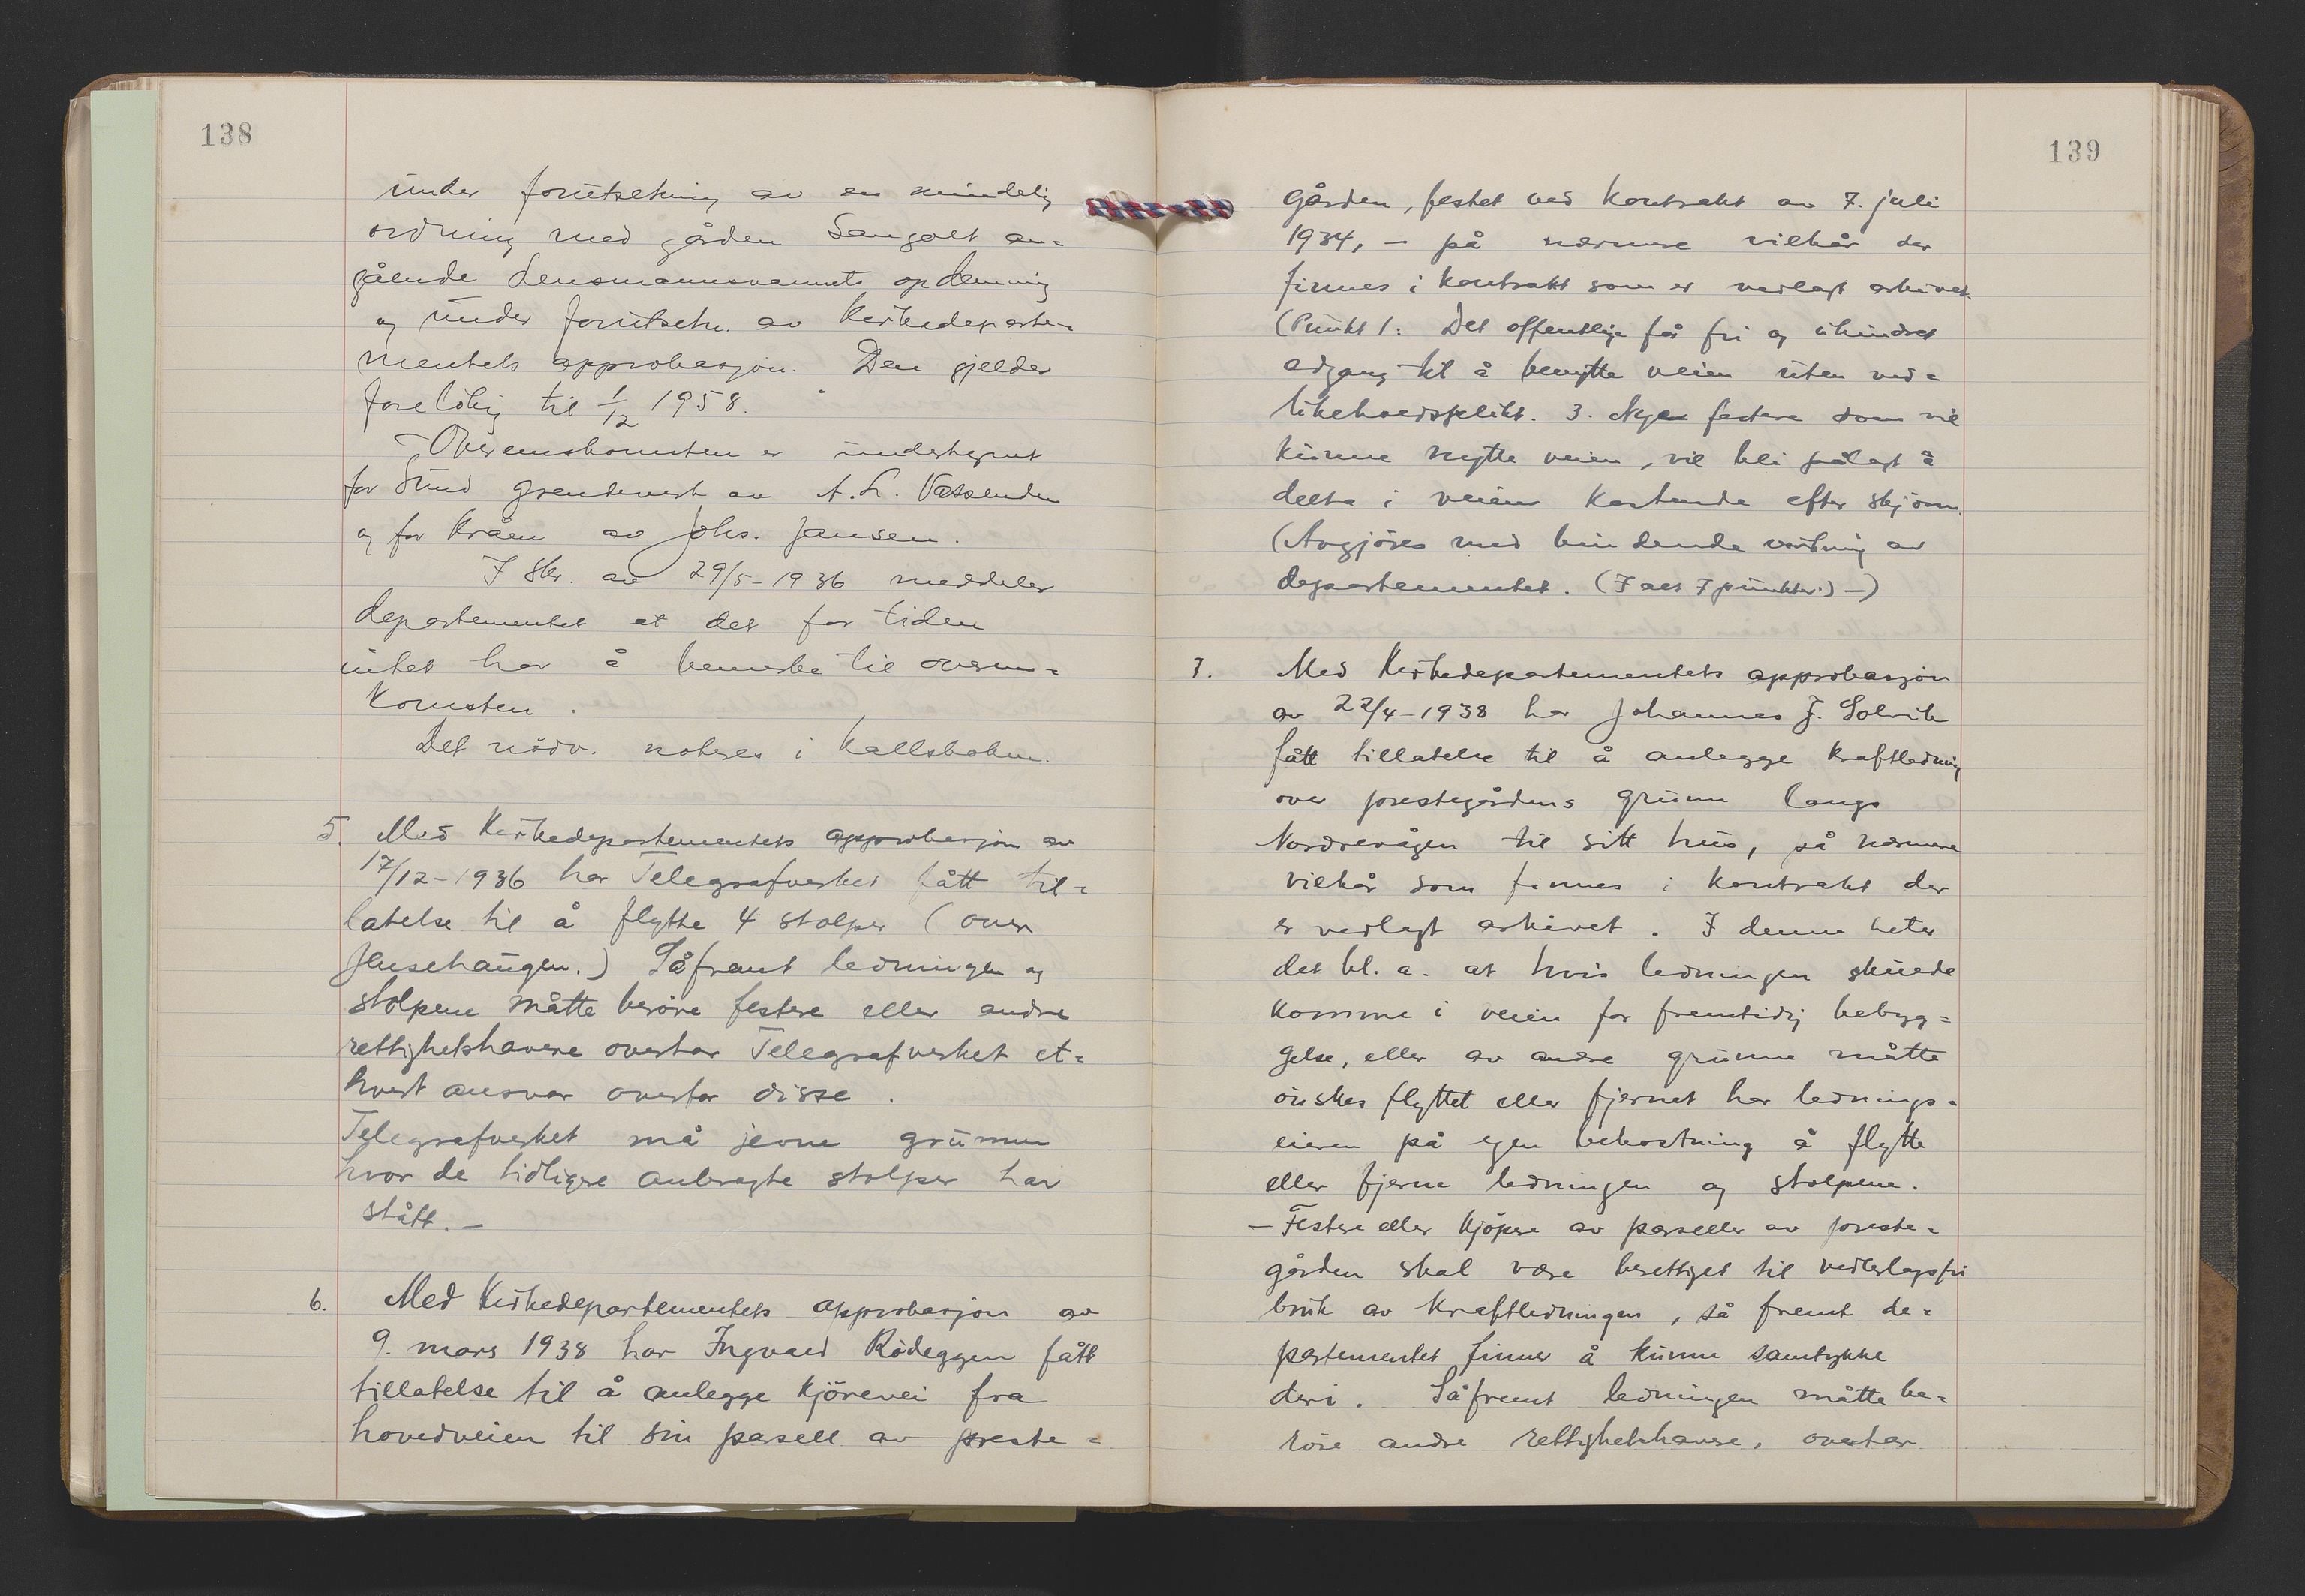 138
under forutsetning av en mindelig
ordning med gården Sangolt an=
gående Lensmannsvannets opdemning
og under forutsetn. av Kirkedeparte=
mentets approbasjon. Den gjelder
foreløbig til 1/12 1958.
- Overenskomsten er undertegnet
for Sund av A. L. Vassenden
og for Kråen av Johs. Jansen.
I skr. av 29/5-1936 meddeler
departementet at det for tiden
intet har å bemerke til overens=
komsten.
Det nödv. noteres i Kallsboken.
5. Med Kirkedepartementets approbasjon av
17/12-1936 har Telegrafverket fått til=
latelse til å flytte 4 stolper (over
.) Såfremt ledningen og
stolpene måtte beröre festere eller andre
rettighetshavere overtar Telegrafverket et=
hvert ansvar overfor disse.
Telegrafverket må jevne grunnen
hvor de tidligere anbragte stolper har
stått. -
6. Med Kirkedepartementets approbasjon av
9. mars 1938 har Ingvald Rödeggen fått
tillatelse til å anlegge kjörevei fra
hovedveien til sin parsell av preste=
139
gården, festet ved kontrakt av 7. juli
1934, - på nærmere vilkår der
finnes i kontrakt som er vedlagt arkivet.
(Punkt 1: Det offentlige får fri og uhindret
adgang til å benytte veien uten ved=
likeholdsplikt. 3. Nye festere som vil
kunne nytte veien, vil bli pålagt å
delta i veiens kostende efter skjönn.
(Avgjöres med bindende virkning av
departementet. (I alt 7 punkter.) -)
7. Med Kirkedepartementets approbasjon
av 22/4-1938 har Johannes J. Solvik
fått tillatelse til å anlegge kraftledning
over prestegårdens grunn langs
Nordrevågen til sitt hus, på nærmere
vilkår som finnes i kontrakt der
er vedlagt arkivet. I denne heter
det bl. a. at hvis ledningen skulde
komme i veien for fremtidig bebyg=
gelse, eller av andre grunne måtte
önskes flyttet eller fjernet har lednings=
eieren på egen bekostning å flytte
eller fjerne ledningen og stolpene.
- Festere eller kjöpere av parseller av preste=
gården skal være berettiget til vederlagsfri
bruk av kraftledningen, så fremt de=
partementet finner å kunne samtykke
deri. Såfremt ledningen måtte be=
röre andre rettighetshavere, overtar